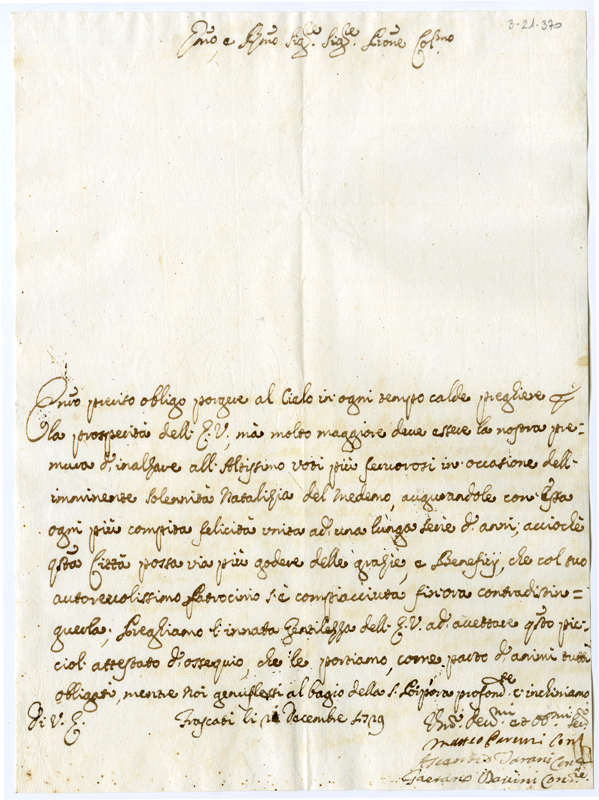 3-21-370
Emo, e Rmo Sigre. Sigre. Prone Colmo
Enro preciso obligo porgere al Cielo in ogni tempo calde preghiere p
la prosperità dell' E.V. mà molto maggiore deve essere la nostra pre=
mura d'inalzare all' Altissimo voti più fervorosi in occasione dell'
imminente solennità Natalizia del Medemo, augurandole con Essa
ogni più compita felicità unita ad una lunga serie d'anni; acciochè
qsta Città possa via più godere delle grazie, e Beneficij, che col suo
autorevolissimo Patrocinio s'è compiacciuta finora contradistin=
guerla; Preghiamo l'innata Gentilezza dell' E.V. ad accettare qsto pic=
ciol attestato d'ossequio, che le portiamo, come parto d'animi tutti
obligati, mentre noi genuflessi al bagio della S. Porpora profondte. c'inchiniamo
Di V. E. Frascati li Decembre 1729
Matteo Conf
Gaetano Conre.